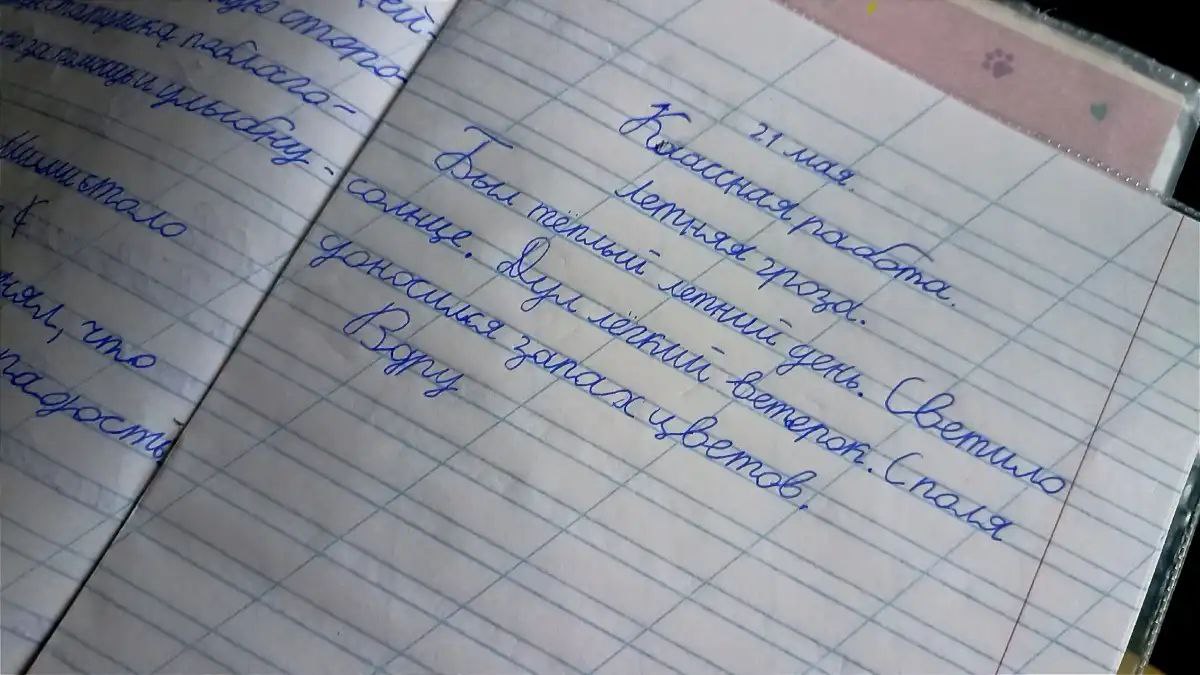 ей-
стару
старушка поблаго-
за помощь и улыбну-
Ними стало
нял, что
радость
21 мая.
Классная работа.
Летняя гроза.
Был тёплый летний день. Светило
солнце. Дул лёгкий ветерок. С поля
доносился запах цветов.
Вдру